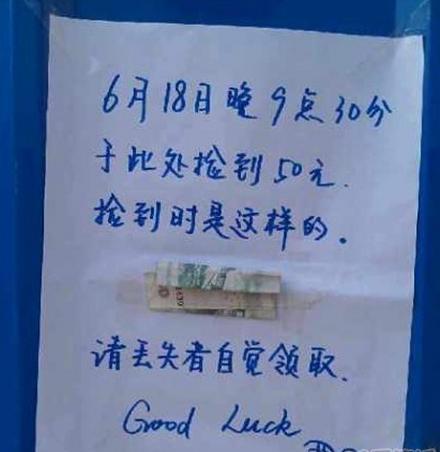 6月18日晚9点30分
于此处捡到50元.
捡到时是这样的。
请丢失者自觉领取.
Good Luck